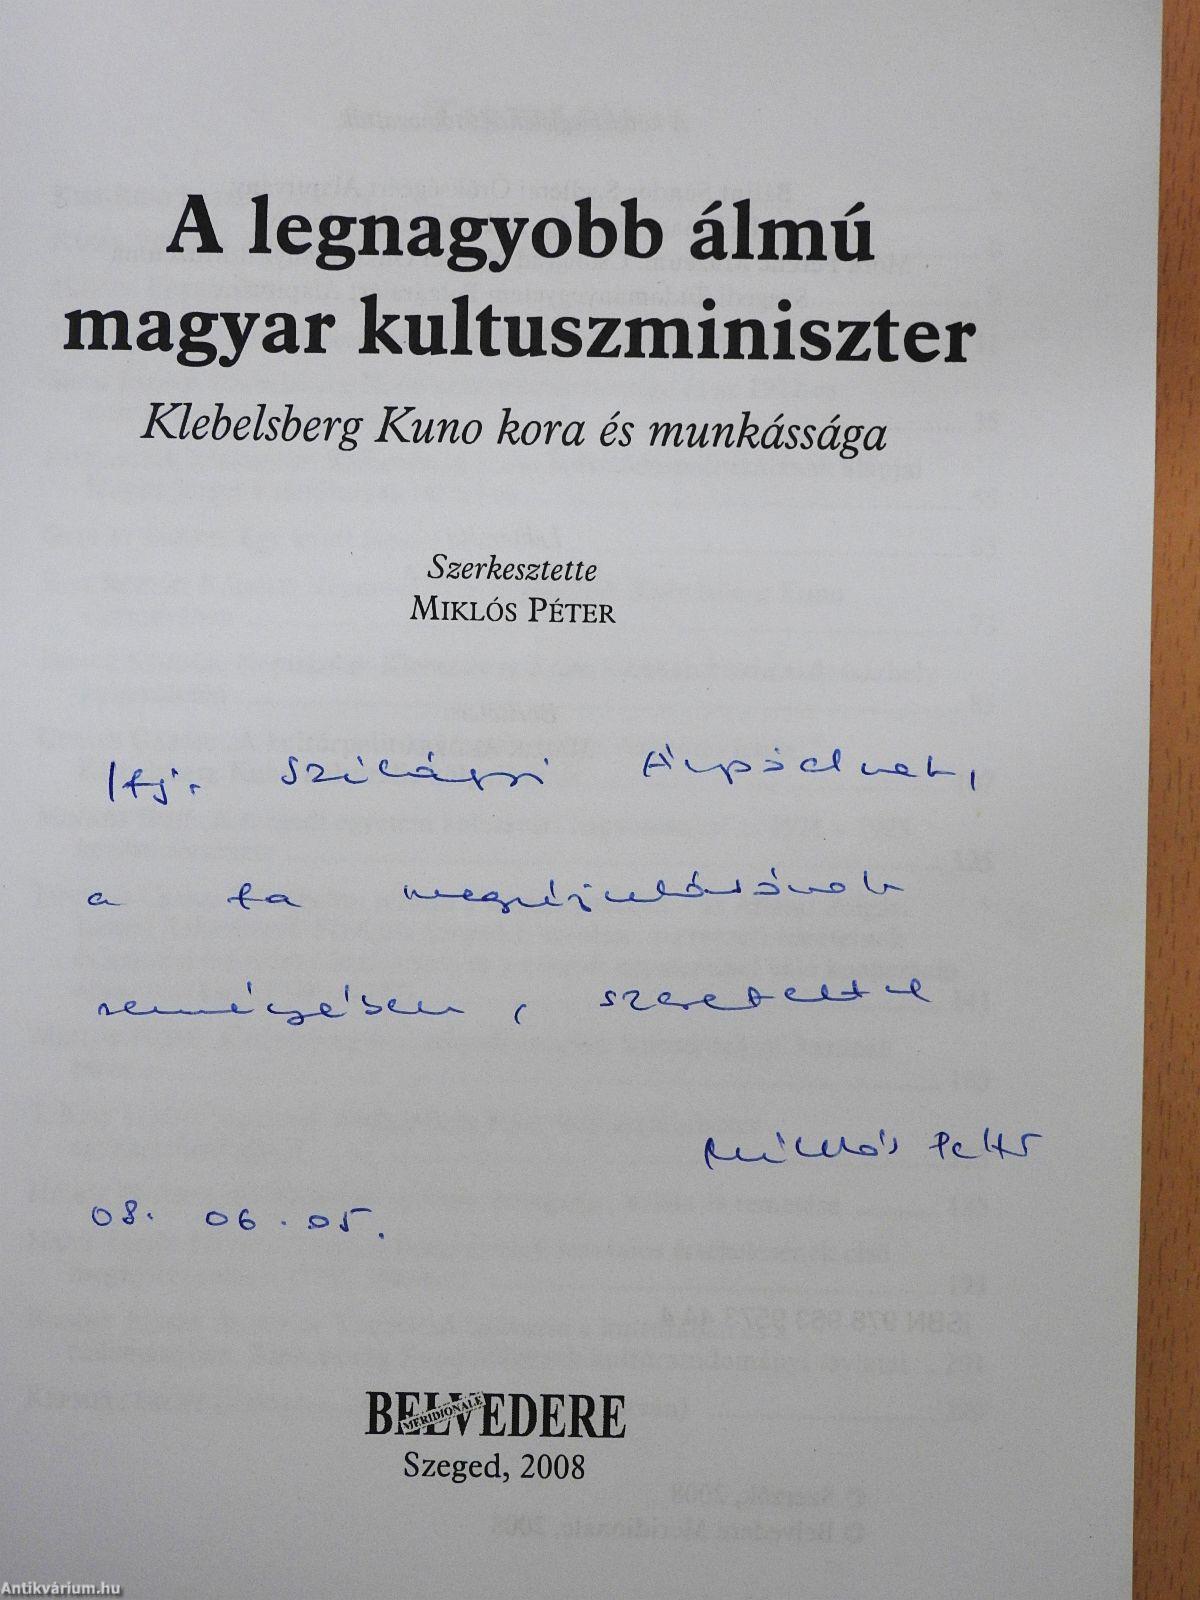 A legnagyobb álmú
magyar kultuszminiszter
Klebelsberg Kuno kora és munkássága
Szerkesztette
MIKLÓS PÉTER
Ifj. Szilágyi Árpádnak,
a fa megújulásának
reményében, szeretettel
Miklós Péter
08. 06. 05.
BELVEDERE
MERIDIONALE
Szeged, 2008
Antikvárium.hu